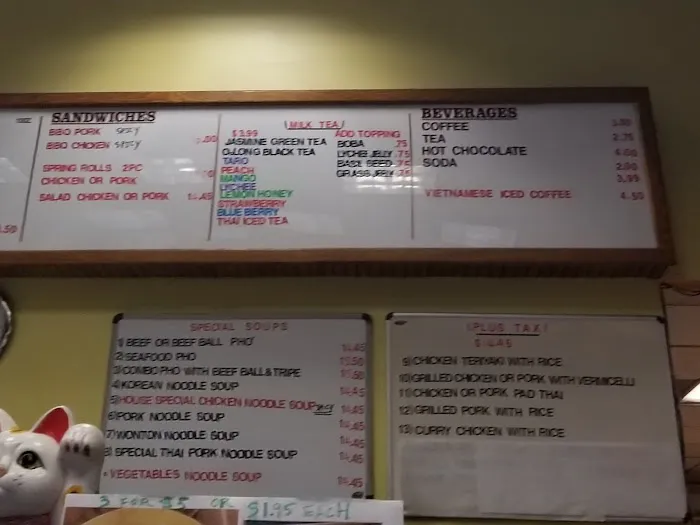 SANDWICHES
BBQ PORK SPICY
BBQ CHICKEN SPICY
SPRING ROLLS 2PC
CHICKEN OR PORK
SALAD CHICKEN OR PORK 14.45
.50
MILK TEA
$3.99 ADD TOPPING
JASMINE GREEN TEA BOBA .75
OOLONG BLACK TEA LYCHEE JELLY .75
TARO BASIL SEED .75
PEACH GRASS JELLY .75
MANGO
LYCHEE
LEMON HONEY
STRAWBERRY
BLUE BERRY
THAI ICED TEA
BEVERAGES
COFFEE
TEA 2.75
HOT CHOCOLATE 4.00
SODA 2.00
3.99
VIETNAMESE ICED COFFEE 4.50
SPECIAL SOUPS
1) BEEF OR BEEF BALL PHO 14.45
2) SEAFOOD PHO 15.50
3) COMBO PHO WITH BEEF BALL & TRIPE 15.50
4) KOREAN NOODLE SOUP 14.45
5) HOUSE SPECIAL CHICKEN NOODLE SOUP 14.45
6) PORK NOODLE SOUP 14.45
7) WONTON NOODLE SOUP 14.45
8) SPECIAL THAI PORK NOODLE SOUP 14.45
VEGETABLES NOODLE SOUP 14.45
(PLUS TAX)
$14.45
9) CHICKEN TERIYAKI WITH RICE
10) GRILLED CHICKEN OR PORK WITH VERMICELLI
11) CHICKEN OR PORK PAD THAI
12) GRILLED PORK WITH RICE
13) CURRY CHICKEN WITH RICE
3 FOR $5 OR $1.95 EACH